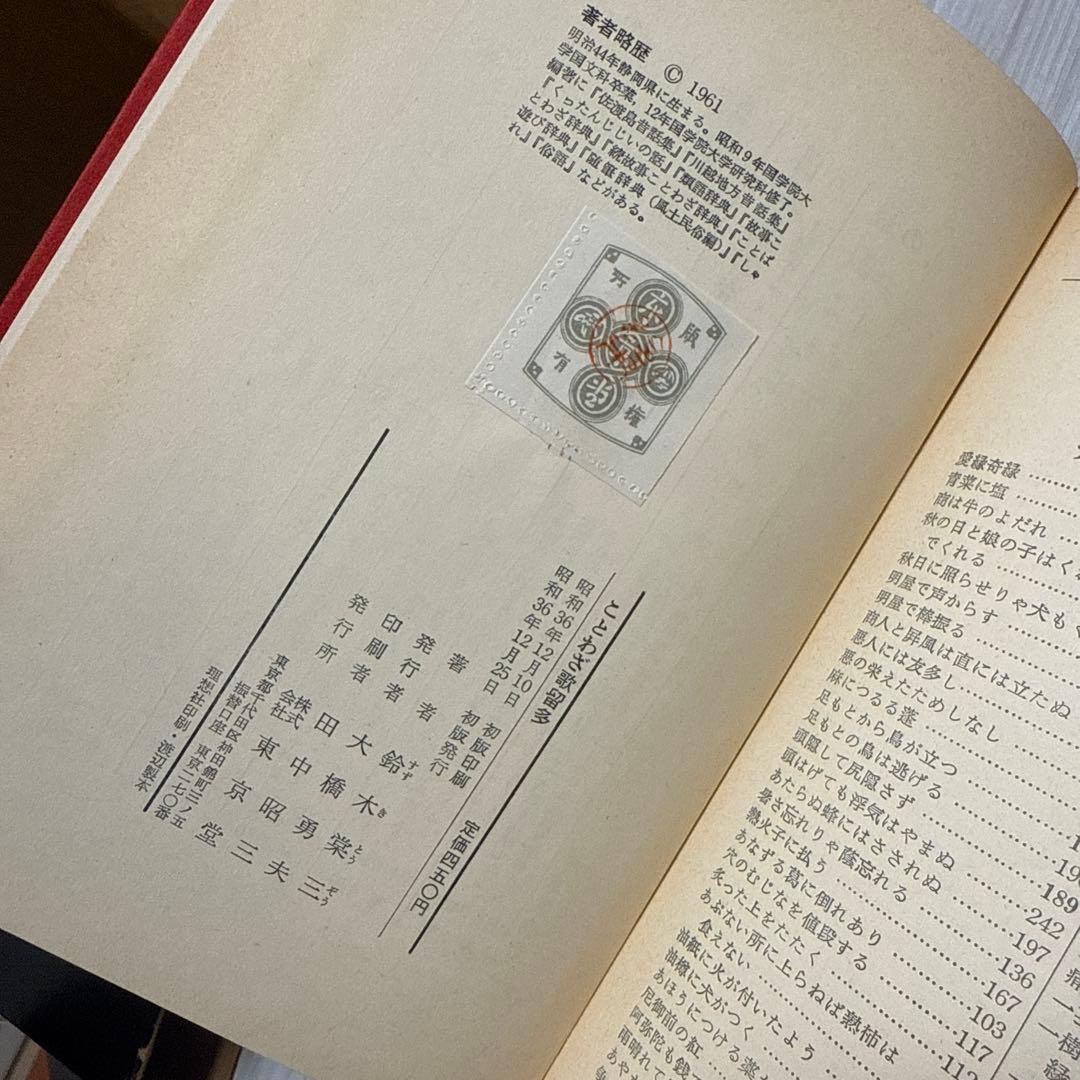 著者略歴 © 1961
明治44年静岡県に生まる。昭和9年国学院大
学国文科卒業，12年国学院大学研究科修了。
編著に『佐渡島昔話集』『川越地方昔話集』
『くったんじじいの話』『類語辞典』『故事こ
とわざ辞典』『続故事ことわざ辞典』『ことば
遊び辞典』『随筆辞典（風土民俗編）』『しゃ
れ』『俗語』などがある。
版権所有
ことわざ歌留多
定価四五〇円
昭和36年12月10日 初版印刷
昭和36年12月25日 初版発行
著者 鈴木棠三
すずきとうぞう
発行者 大橋勇夫
印刷者 田中昭三
発行所 株式会社 東京堂
東京都千代田区神田錦町三ノ五
振替口座東京二七〇番
理想社印刷・渡辺製本
愛縁奇縁
青菜に塩
商は牛のよだれ
秋の日と娘の子はくれ
でくれる
秋日に照らせりゃ犬も
明屋で声からす
明屋で棒振る
商人と屏風は直には立たぬ
悪人には友多し
悪の栄えたためしなし
麻につるる蓬
足もとから鳥が立つ
足もとの鳥は逃げる
頭隠して尻隠さず
頭はげても浮気はやまぬ
あたらぬ蜂にはさされぬ 189
暑さ忘れりゃ蔭忘れる 242
熱火子に払う 197
あなずる葛に倒れあり 136
穴のむじなを値段する 167
炙った上をたたく 103
あぶない所に上らねば熟柿は
食えない 117
油紙に火が付いたよう
油樽に犬がつく
あほうにつける薬
尼御前の紅
阿弥陀も銭
雨晴れて